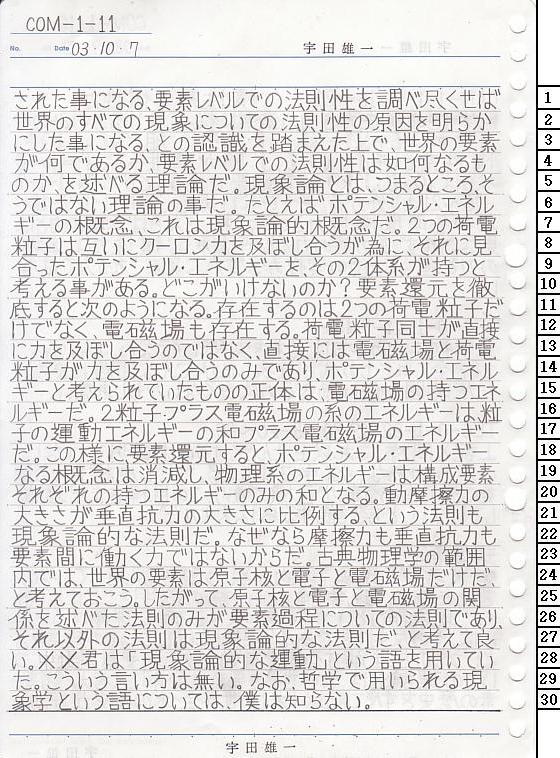 COM-1-11
No.
Date 03・10・7
宇田雄一
された事になる、要素レベルでの法則性を調べ尽くせば
世界のすべての現象についての法則性の原因を明らか
にした事になる、との認識を踏まえた上で、世界の要素
が何であるか、要素レベルでの法則性は如何なるも
のか、を述べる理論だ。現象論とは、つまるところ、そ
うではない理論の事だ。たとえばポテンシャル・エネル
ギーの概念、これは現象論的概念だ。2つの荷電
粒子は互いにクーロン力を及ぼし合うが為に、それに見
合ったポテンシャル・エネルギーを、その2体系が持つと
考える事がある。どこがいけないのか?要素還元を徹
底すると次のようになる。存在するのは2つの荷電粒子だ
けでなく、電磁場も存在する。荷電粒子同士が直接
に力を及ぼし合うのではなく、直接には電磁場と荷電
粒子が力を及ぼし合うのみであり、ポテンシャル・エネル
ギーと考えられていたものの正体は、電磁場の持つエネ
ルギーだ。2粒子プラス電磁場の系のエネルギーは、粒
子の運動エネルギーの和プラス電磁場のエネルギー
だ。この様に、要素還元すると、ポテンシャル・エネルギー
なる概念は消滅し、物理系のエネルギーは構成要素
それぞれの持つエネルギーのみの和となる。動摩擦力の
大きさが垂直抗力の大きさに比例する、という法則も
現象論的な法則だ。なぜなら摩擦力も垂直抗力も
要素間に働く力ではないからだ。古典物理学の範囲
内では、世界の要素は原子核と電子と電磁場だけだ、
と考えておこう。したがって、原子核と電子と電磁場の関
係を述べた法則のみが要素過程についての法則であり、
それ以外の法則は現象論的な法則だ、と考えて良
い。××君は「現象論的な運動」という語を用いてい
た。こういう言い方は無い。なお、哲学で用いられる現
象学という語については、僕は知らない。
宇田雄一
1
2
3
4
5
6
7
8
9
10
11
12
13
14
15
16
17
18
19
20
21
22
23
24
25
26
27
28
29
30